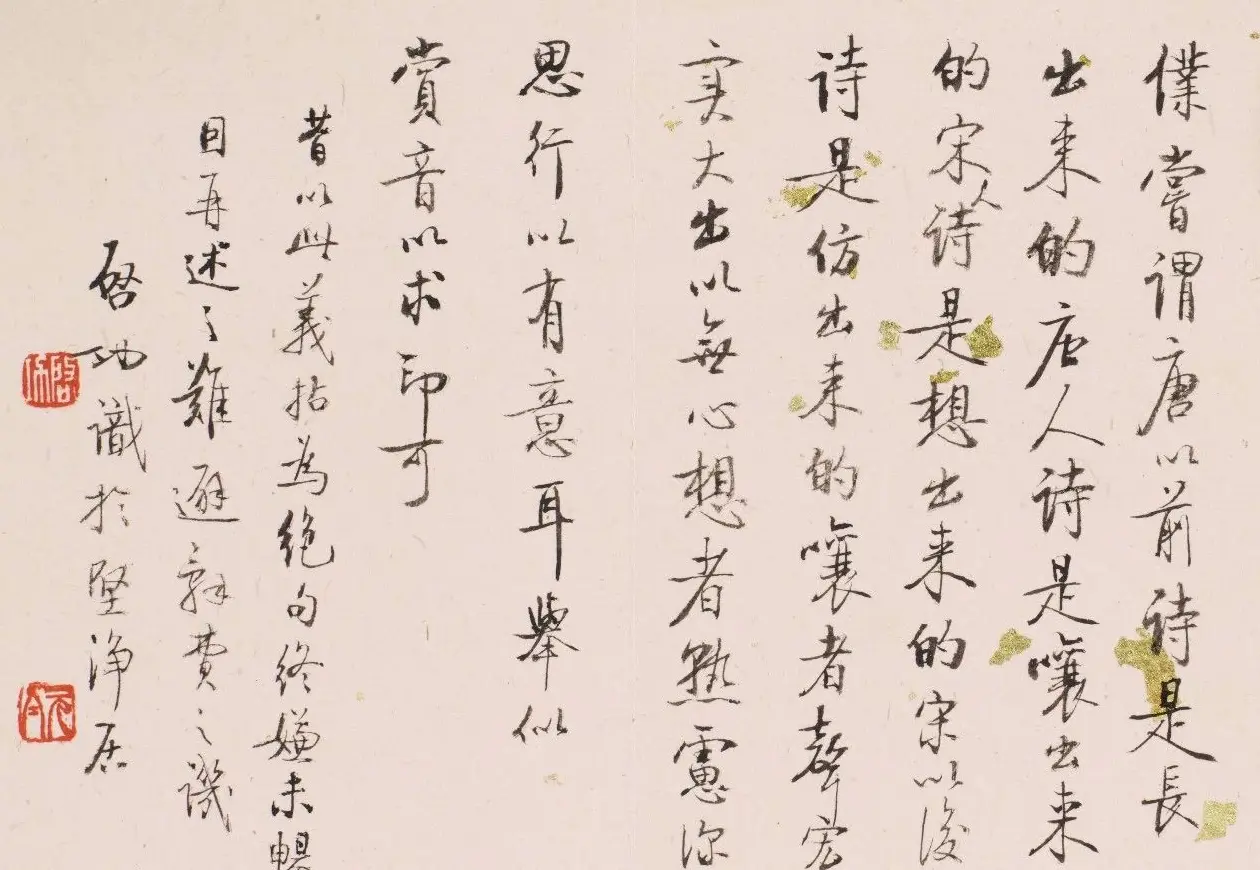 僕嘗謂唐以前诗是長
出来的唐人诗是嚷出来
的宋人诗是想出来的宋以後
诗是仿出来的嚷者聲宏
实大出以無心想者熟慮深
思行以有意耳舉似
賞音以求印可
昔以此義拈為绝句终嫌未暢
因再述之難避辞費之譏
啓功識於堅浄居
啓功
元白